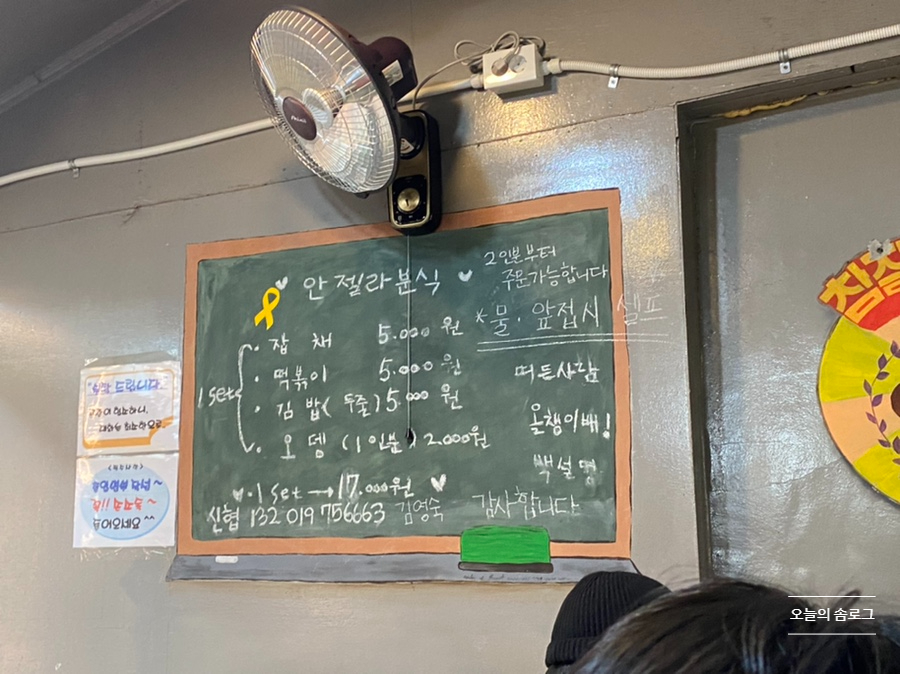 안젤라분식
2인분부터
주문가능합니다
*물·앞접시 셀프
1 set
· 잡채 5.000 원
· 떡볶이 5.000 원
· 김밥(두줄) 5.000 원
· 오뎀 (1인분) 2.000원
떠든사람
올챙이배!
백설명
·1 set → 17.000원
신협 132 019 756663 김영숙
감사합니다
참잘
오늘의 솜로그